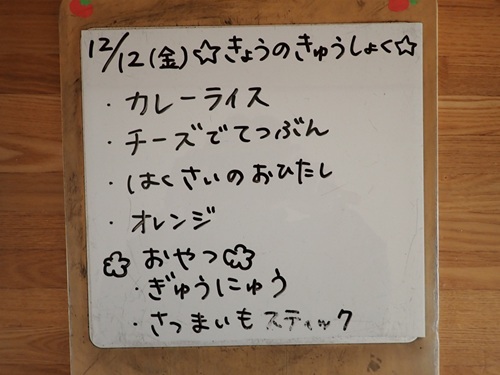 12/12(金)☆きょうのきゅうしょく☆
・カレーライス
・チーズでてつぶん
・はくさいのおひたし
・オレンジ
おやつ
・ぎゅうにゅう
・さつまいもスティック